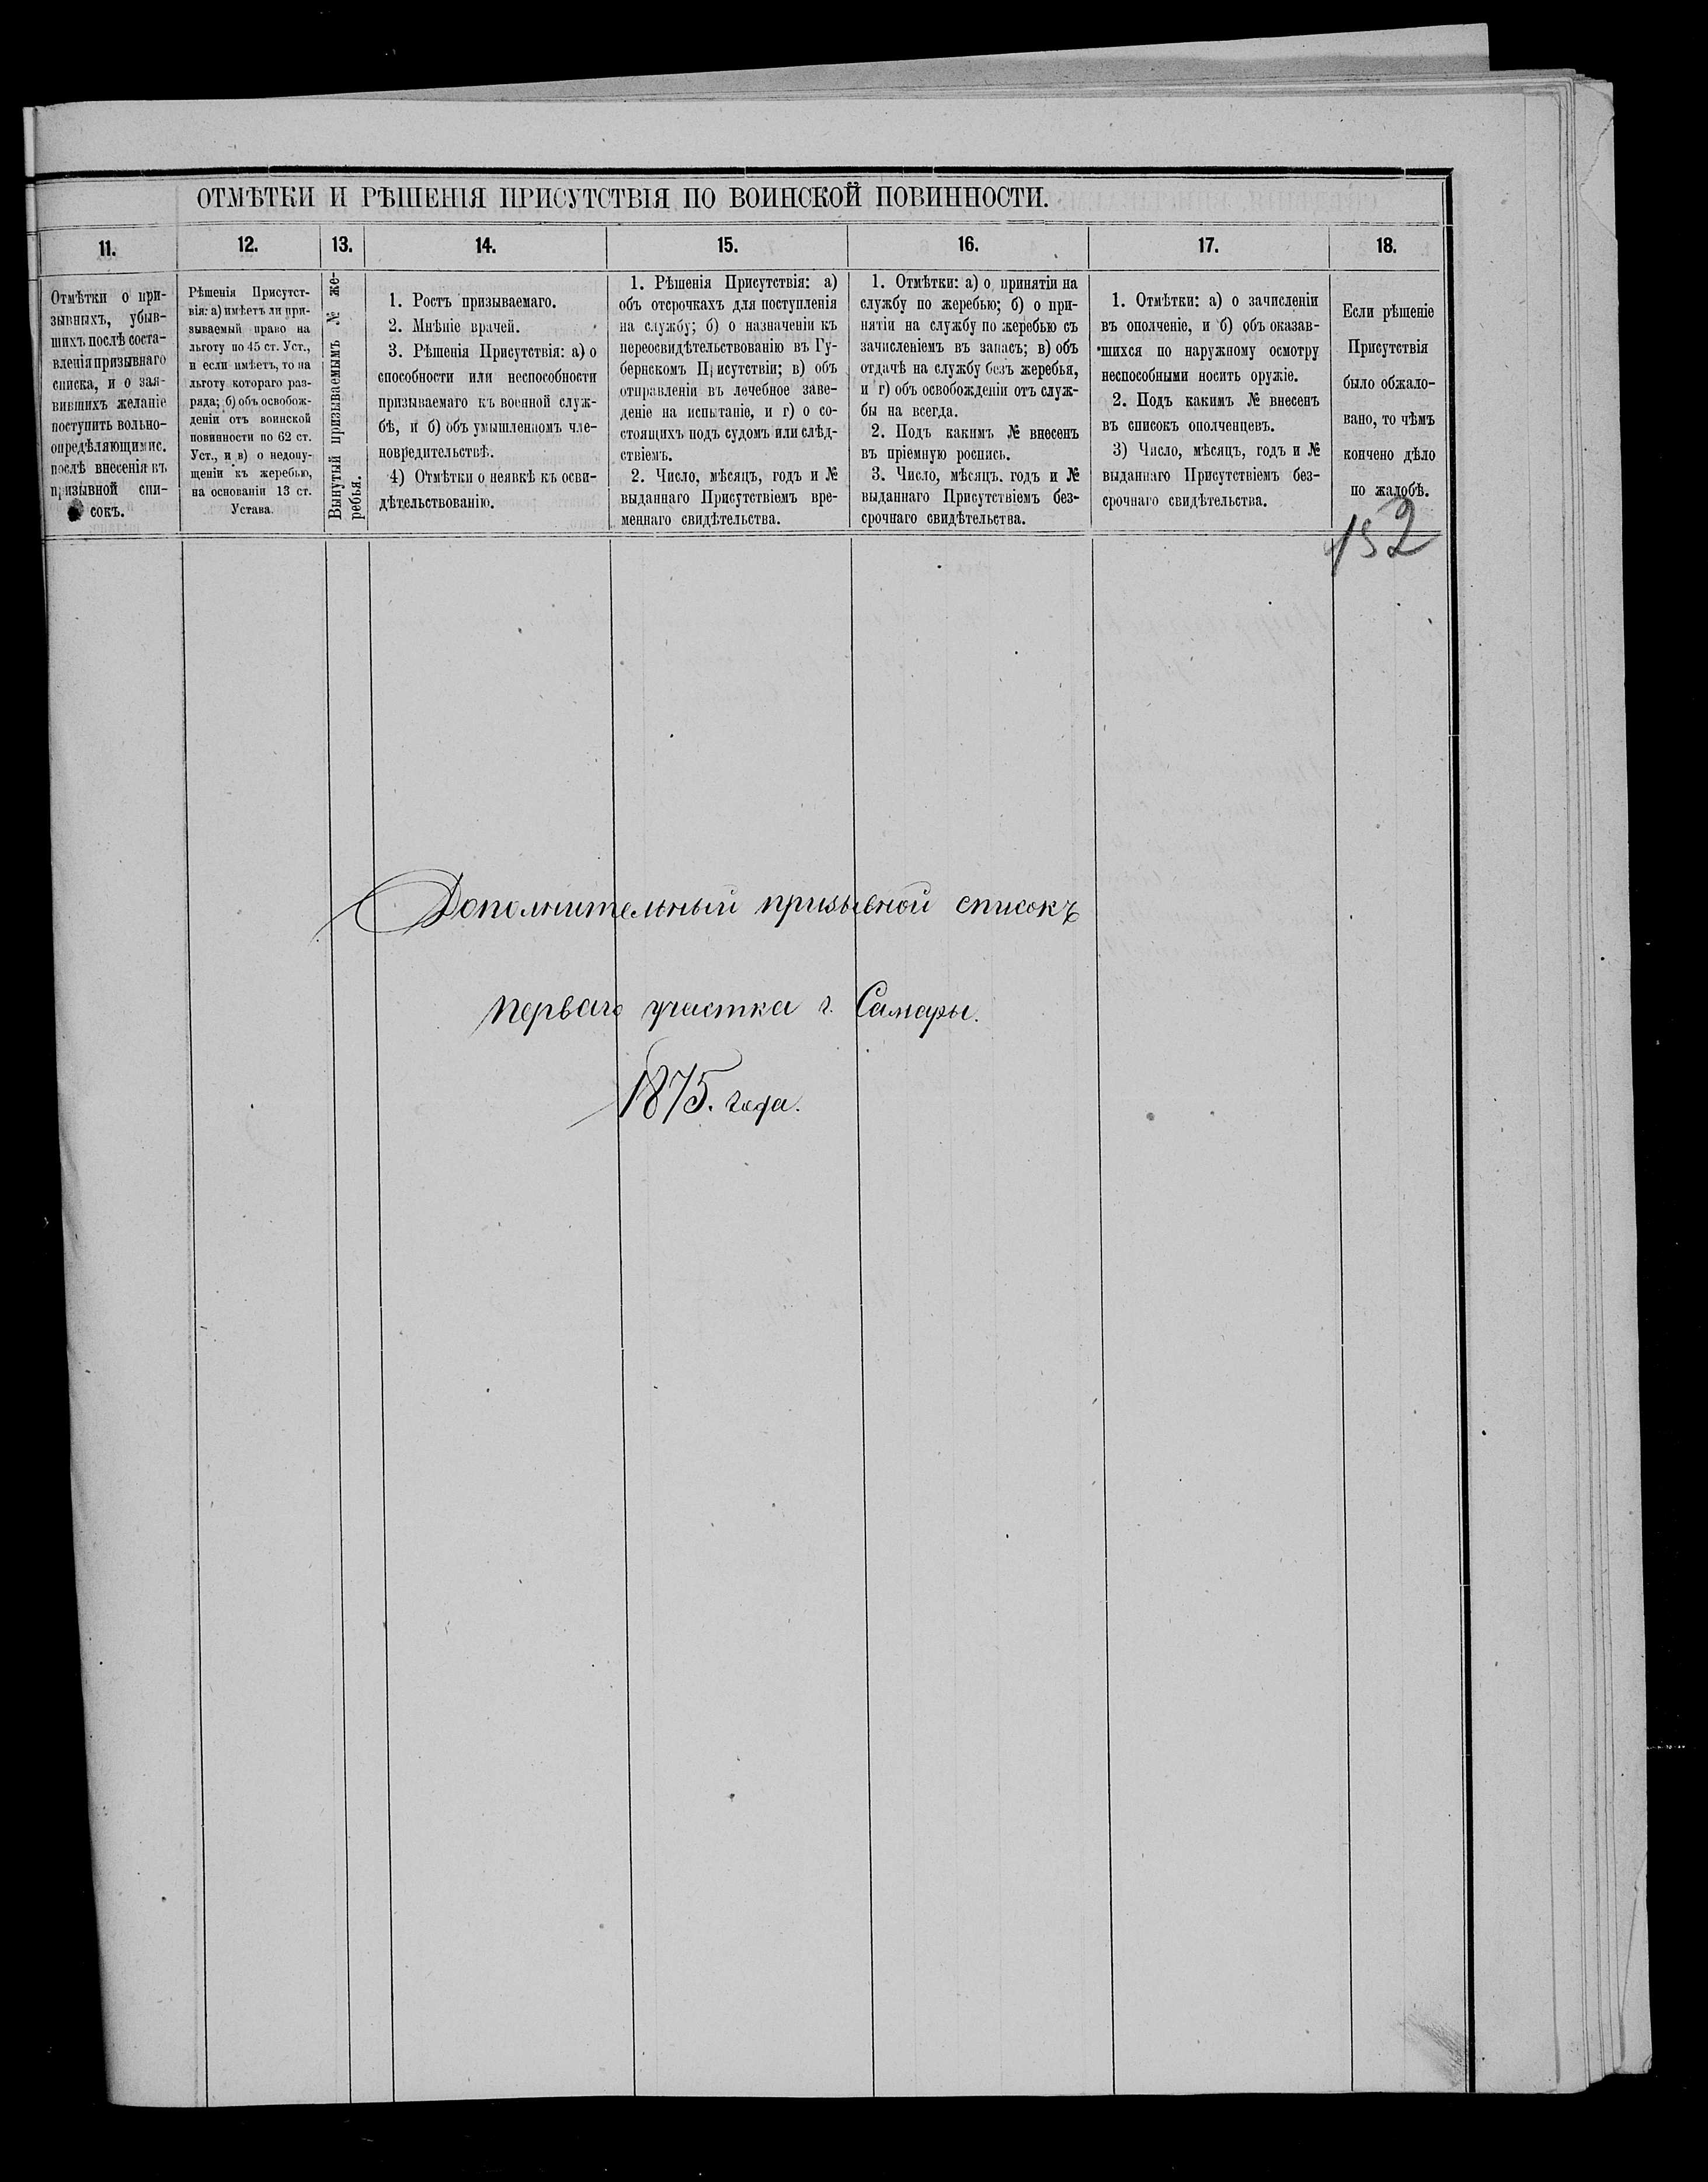 ОТМѢТКИ И РѢШЕНІЯ ПРИСУТСТВІЯ ПО ВОИНСКОЙ ПОВИННОСТИ.
11.
12.
13.
14.
15.
16.
17.
18.
Отмѣтки о при-
зывныхъ, убыв-
шихъ послѣ соста-
вленія призывнаго
списка, и о зая-
вившихъ желаніе
поступить вольно-
опредѣляющимис.
послѣ внесенія въ
призывной спи-
сокъ.
Рѣшенія Присутст-
вія: а) имѣетъ ли при-
зываемый право на
льготу по 45 ст. Уст.,
и если имѣетъ, то на
льготу котораго раз-
ряда; б) объ освобож-
деніи отъ воинской
повинности по 62 ст.
Уст., и в) о недопу-
щеніи къ жеребью,
на основаніи 13 ст.
Устава.
Вынутый призываемымъ № же-
ребья.
1. Ростъ призываемаго.
2. Мнѣніе врачей.
3. Рѣшенія Присутствія: а) о
способности или неспособности
призываемаго къ военной служ-
бѣ, и б) объ умышленномъ чле-
новредительствѣ.
4) Отмѣтки о неявкѣ къ осви-
дѣтельствованію.
1. Рѣшенія Присутствія: а)
объ отсрочкахъ для поступленія
на службу; б) о назначеніи къ
переосвидѣтельствованію въ Гу-
бернскомъ Присутствіи; в) объ
отправленіи въ лечебное заве-
деніе на испытаніе, и г) о со-
стоящихъ подъ судомъ или слѣд-
ствіемъ.
2. Число, мѣсяцъ, годъ и №
выданнаго Присутствіемъ вре-
меннаго свидѣтельства.
1. Отмѣтки: а) о принятіи на
службу по жеребью; б) о при-
нятіи на службу по жеребью съ
зачисленіемъ въ запасъ; в) объ
отдачѣ на службу безъ жеребья,
и г) объ освобожденіи отъ служ-
бы на всегда.
2. Подъ какимъ № внесенъ
въ пріемную роспись.
3. Число, мѣсяцъ. годъ и №
выданнаго Присутствіемъ без-
срочнаго свидѣтельства.
1. Отмѣтки: а) о зачисленіи
въ ополченіе, и б) объ оказав-
шихся по наружному осмотру
неспособными носить оружіе.
2. Подъ какимъ № внесенъ
въ списокъ ополченцевъ.
3) Число, мѣсяцъ, годъ и №
выданнаго Присутствіемъ без-
срочнаго свидѣтельства.
Если рѣшеніе
Присутствія
было обжало-
вано, то чѣмъ
кончено дѣло
по жалобѣ.
152
Дополнительный призывной списокъ
перваго участка г. Самары.
1875. года.